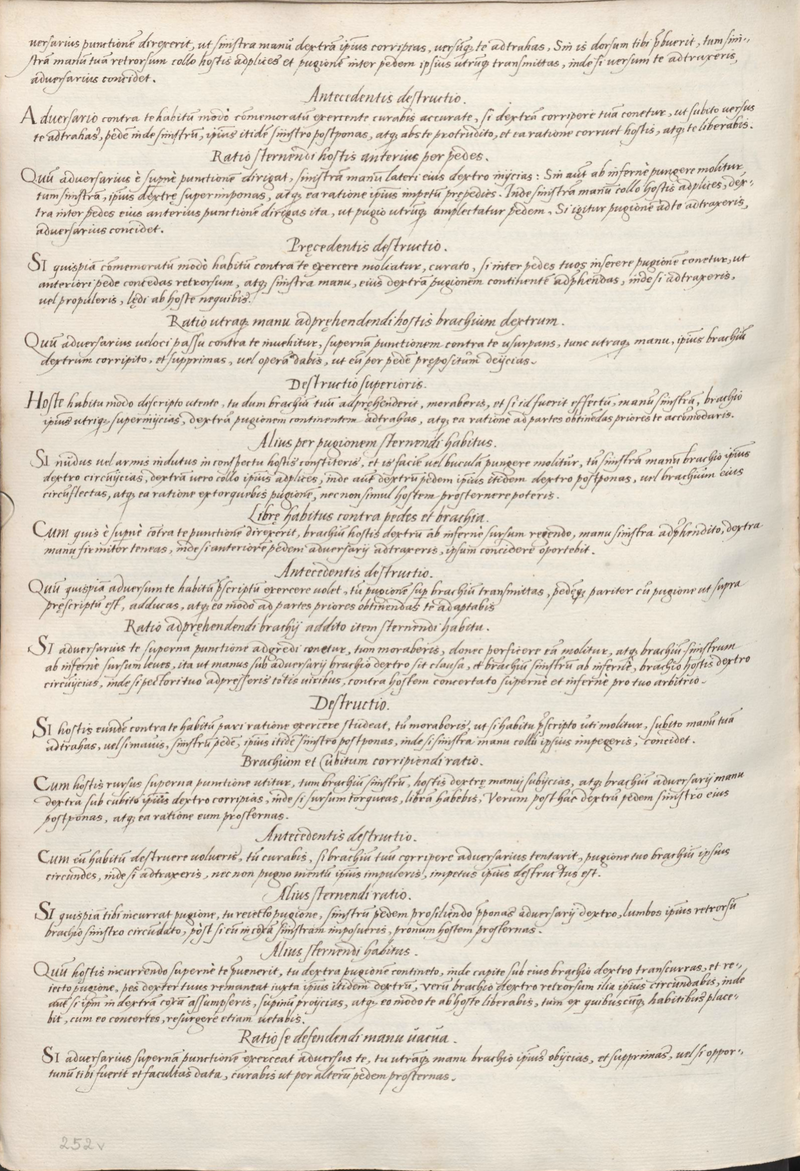 versarius punctionē direxerit, ut sinistra manū dextrā ipsius corripias, versusq; te adtrahas, Sin is dorsum tibi p̄buerit, tum sini-
strā manū tuā retrorsum collo hostis adplices et pugionē inter pedem ipsius utrūq; transmittas, inde si versum te adtraxeris,
adversarius concidet.
Antecedentis destructio.
Adversario contra te habitū modo cōmemoratū exercente curabis accurate, si dextrā corripere tuā conetur, ut subito versus
te adtrahas, pedē inde sinistrū, ipsius itidē sinistro postponas, atq; abs te protrudito, et ea ratione corruet hostis, atq; te liberabis.
Ratio sternendi hostis anterius per pedes.
Quū adversarius è supernè punctionē dirigat, sinistrā manū lateri eius dextro inijcias: Sin aut ab infernè pungere molitur
tum sinistrā, ipsius dextrę superimponas, atq; ea ratione ipsius impetū prępedies. Inde sinistrā manū collo hostis adplices, dex-
tra inter pedes eius anterius punctionē dirigas ita, ut pugio utrūq; amplectatur pedem, Si igitur pugionē ad te adtraxeris,
adversarius concidet.
Pręcedentis destructio.
SI quispiā cōmemoratū modò habitū contra te exercere moliatur, curato, si inter pedes tuos inserere pugionē conetur, ut
anteriori pede concedas retrorsum, atq; sinistra manu, eius dextrā pugionem continentē adphendas, inde si adtraxeris,
vel propuleris, lędi ab hoste nequibis.
Ratio utraq; manu adpręhendendi hostis brachium dextrum.
Quū adversarius veloci passu contra te invehitur, supernā punctionem contra te usurpans, tunc utraq; manu, ipsius brachiū
dextrum corripito, et supprimas, vel operā dabis, ut eū per pedē prępositum deijcias.
Destructio superioris.
Hoste habitu modo descripto utente, tu dum brachiū tuū adpręhenderit, moraberis, et si id fuerit effectū, manū sinistrā, brachio
ipsius utriq; superinijcias, dextrā pugionem continentem adtrahas, atq; ea ratione ad partes obtinēdas priores te accōmodaris.
Alius per pugionem sternendi habitus.
SI nudus vel armis indutus in conspectu hostis constiteris, et is faciē vel buculā pungere molitur, tū sinistrā manū brachio ipsius
dextro circūijcias, dextrā vero collo ipsius adplices, inde aut dextrū pedem ipsius itidem dextro postponas, vel brachium eius
circūflectas, atq; ea ratione extorquebis pugionē, nec non simul hostem prosternere poteris.
Librę habitus contra pedes et brachia.
Cum quis è supernè cōtra te punctionē direxerit, brachiū hostis dextrū ab infernè sursum regendo, manu sinistra adphendito, dextra
manu firmiter teneas, inde si anteriorē pedem adversarij adtraxeris, ipsum concidere oportebit.
Antecedentis destructio.
Quū quispiā adversum te habitū p̄scriptū exercere volet, tū pugionē sup brachiū transmittas, pedēq; pariter cū pugione ut supra
pręscriptū est, adducas, atq; eo modo ad partes priores obtinendas te adaptabis
Ratio adpręhendendi brachij addito item sternendi habitu.
SI adversarius te superna punctione adgredi conetur, tum moraberis, donec perficere eā molitur, atq; brachiū sinistrum
ab infernè sursum leves, ita ut manus sub adversarij brachio dextro sit clausa, et brachiū sinistrū ab infernè, brachio hostis dextro
circūijcias, inde si pectori tuo adpresseris totis viribus, contra hostem concertato supernè et infernè pro tuo arbitrio.
Destructio.
SI hostis eundē contra te habitū pari ratione exercere studeat, tū moraberis, ut si habitu p̄scripto uti molitur, subito manū tuā
adtrahas, vel si mavis, sinistrū pedē, ipsius itidē sinistro postponas, inde si sinistra manu collū ipsius impegeris, concidet.
Brachium et Cubitum corripiendi ratio.
Cum hostis rursus superna punctione utitur, tum brachiū sinistrū, hostis dextrę manui subijcias, atq; brachiū adversarij manu
dextra sub cubito ipsius dextro corripias, inde si sursum torqueas, librā habebis, Verum post hac dextrū pedem sinistro eius
postponas, atq; ea ratione eum prosternas.
Antecedentis destructio.
Cum eū habitū destruere volueris, tū curabis, si brachiū tuū corripere adversarius tentarit, pugione tuo brachiū ipsius
circundes, inde si adtraxeris, nec non pugno mentū ipsius impuleris, impetus ipsius destructus est.
Alius sternendi ratio.
SI quispiā tibi incurrat pugione, tu reiecto pugione, sinistrū pedem prosiliendo p̄ponas adversarij dextro, lumbos ipsius retrorsū
brachio sinistro circūdato, pōst si eū in coxā sinistram imposueris, pronum hostem prosternas.
Alius sternendi habitus.
Quū hostis incurrendo supernè te p̄uenerit, tu dextra pugionē contineto, inde capite sub eius brachio dextro transcurras, et re-
iecto pugione, pes dexter tuus remaneat iuxta ipsius itidem dextrū, verū brachio dextro retrorsum ilia ipsius circundabis, inde
aut si ip̄m in dextrā coxā assumpseris, supinū proijcias, atq; eo modo te ab hoste liberabis, tum ex quibuscūq; habitibus place-
bit, cum eo concertes, resurgere etiam vetabis.
Ratio se defendendi manu vacua.
SI adversarius supernā punctionē exerceat adversus te, tu utrāq; manu brachio ipsius obijcias, et supprimas, vel si oppor-
tunū tibi fuerit et facultas data, curabis ut per alterū pedem prosternas.
252v